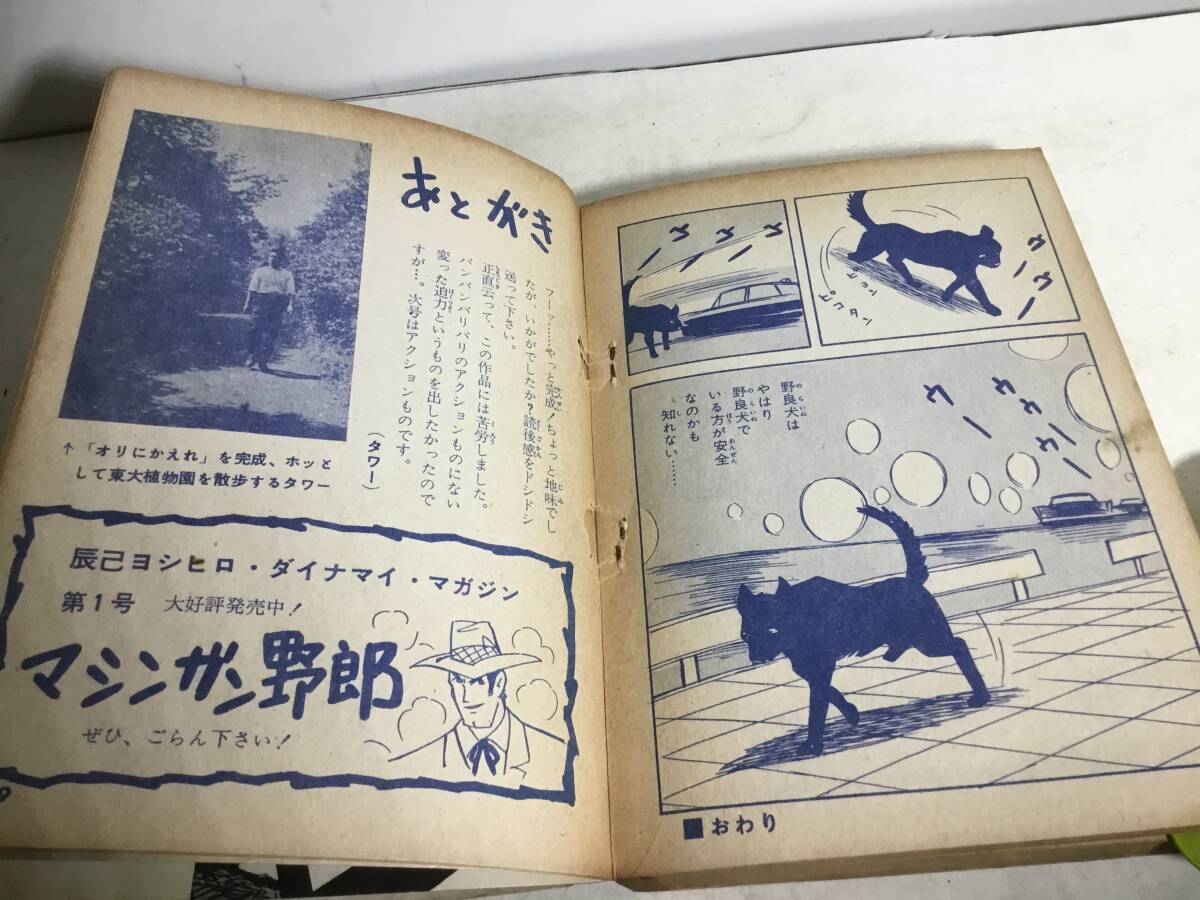 ウウウー
ウー
ピタンピタン
ウウウー
ウー
野良犬は
のらいぬ
やはり
野良犬で
のらいぬ
いる方が安全
ほう
あんぜん
なのかも
知れない……
し
■おわり
あとがき
フーッ……やっと完成！ちょっと地味でし
たが、いかがでしたか？読後感をドシドシ
送って下さい。
正直云って、この作品には苦労しました。
バンバンバリバリのアクションものにない
変った迫力というものを出したかったので
すが…。次号はアクションものです。
（タワー）
↑「オリにかえれ」を完成、ホッと
して東大植物園を散歩するタワー
辰己ヨシヒロ・ダイナマイ・マガジン
第1号 大好評発売中！
マシンガン野郎
ぜひ、ごらん下さい！
9